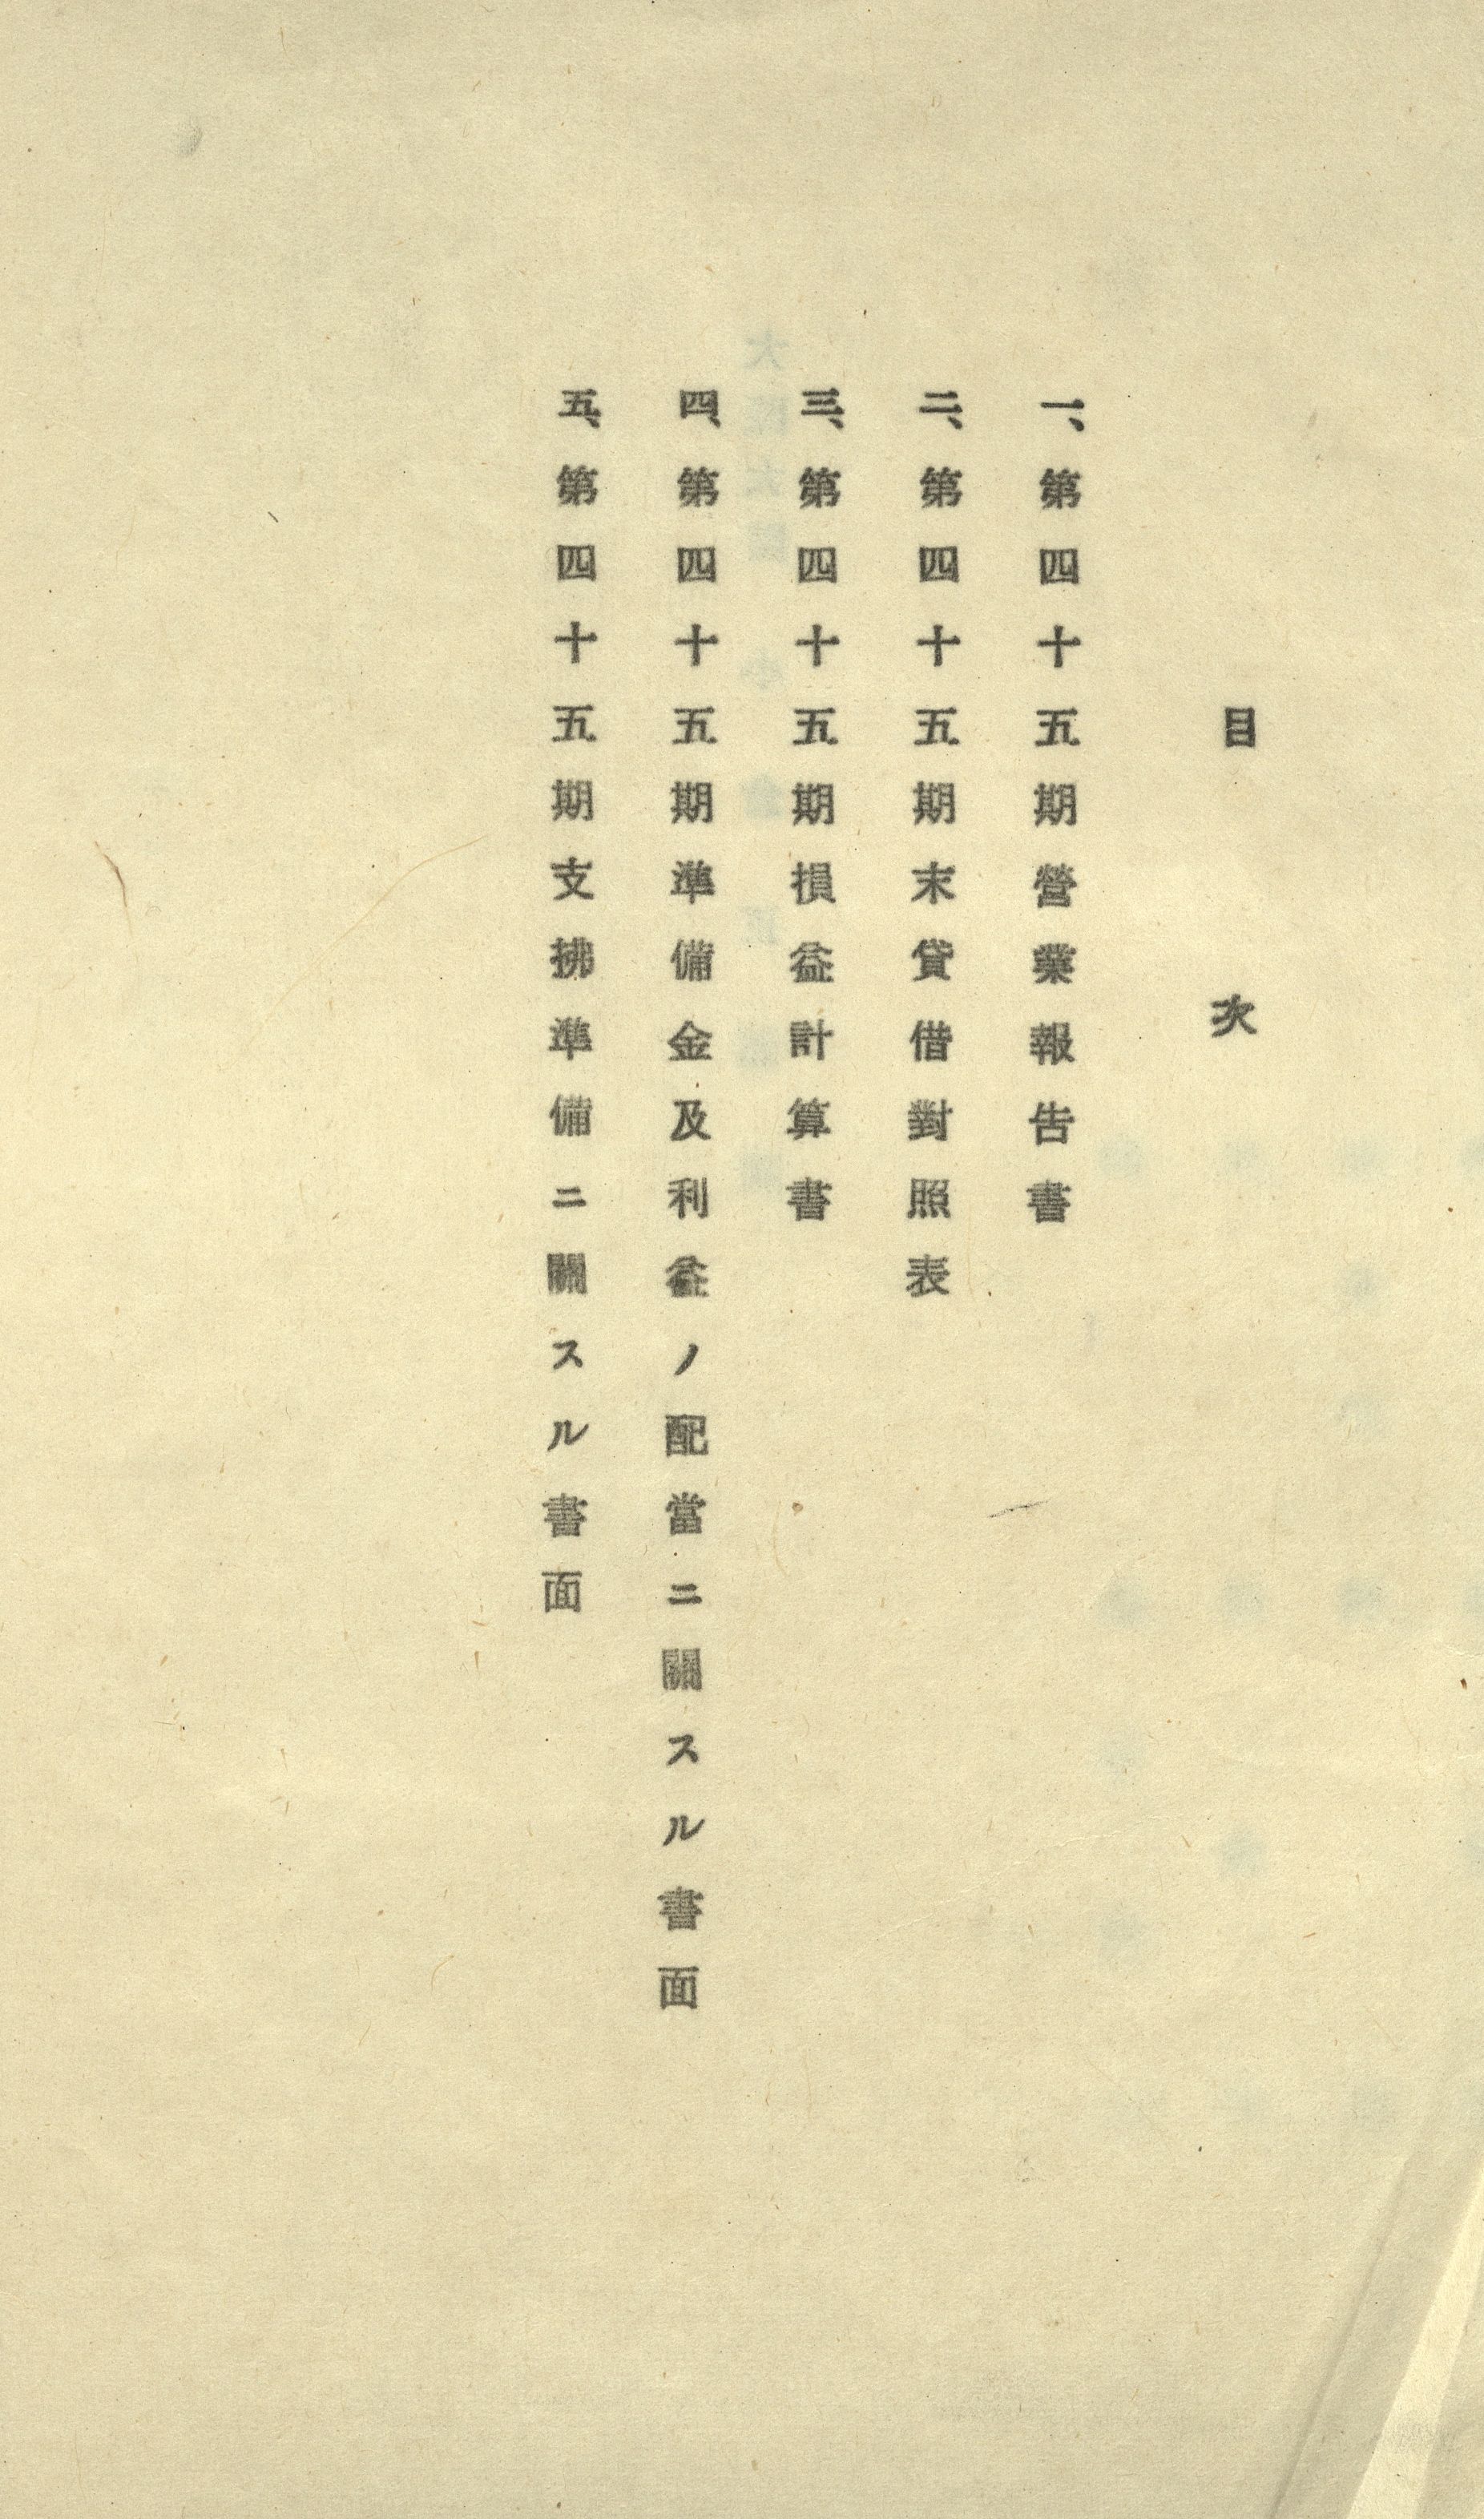 目次
一、第四十五期營業報告書
二、第四十五期末貸借對照表
三、第四十五期損益計算書
四、第四十五期準備金及利益ノ配當ニ關スル書面
五、第四十五期支拂準備ニ關スル書面